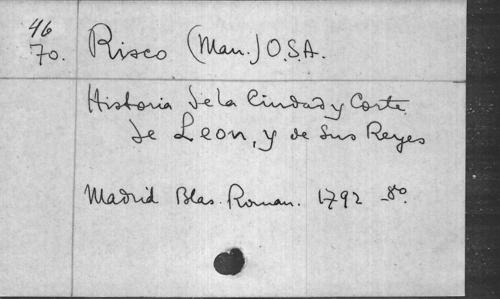 46
70. Risco (Man.) O.S.A.
Historia de la Ciudad y Corte
de Leon, y de Sus Reyes
Madrid Blas. Roman. 1792 - 8º.